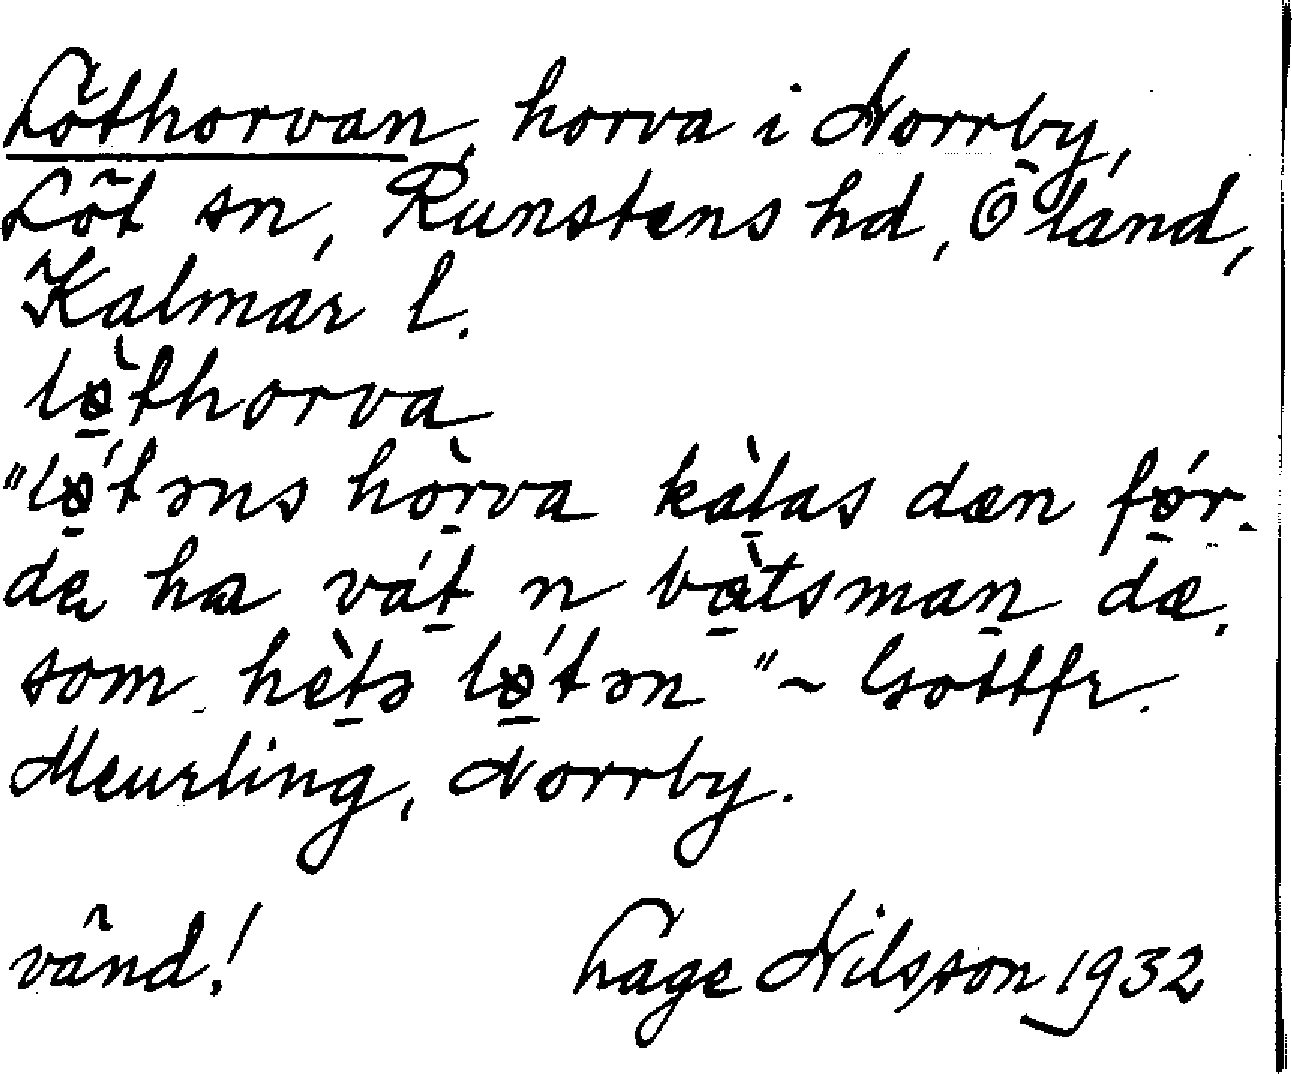 Löthorvan, horva i Norrby,
Löt sn, Runstens hd, Öland,
Kalmar l.
lø̱̀thorva
"lǿ̱təns hòṟva kàḻas dæn fǿ̱r-
da ha váṯ n bà̱tsmaṉ dæ,
som hèṯə lǿ̱tən" ~ Gottfr.
Meurling, Norrby.
vänd! Lage Nilsson 1932